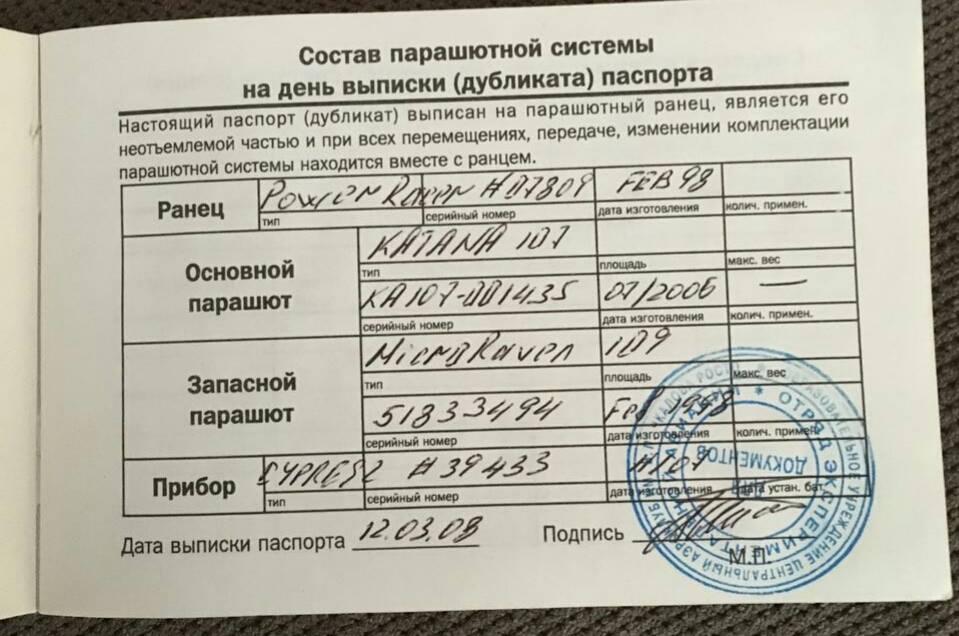 Состав парашютной системы
на день выписки (дубликата) паспорта
Настоящий паспорт (дубликат) выписан на парашютный ранец, является его
неотъемлемой частью и при всех перемещениях, передаче, изменении комплектации
парашютной системы находится вместе с ранцем.
Ранец Power Raven #07809 FEB 98
тип серийный номер дата изготовления колич. примен.
Основной парашют
KATANA 107
тип площадь макс. вес
KA107-001435 07/2006 —
серийный номер дата изготовления колич. примен.
Запасной парашют
MicroRaven 109
тип площадь макс. вес
51833494 Feb 1998
серийный номер дата изготовления колич. примен.
Прибор #39433
тип серийный номер дата изготовления дата устан. бат.
Дата выписки паспорта 12.03.08 Подпись
М.П.
ОТРЯД ЭКСПЕРИМЕНТАЛЬНОЙ АВИАЦИИ
ДЛЯ ДОКУМЕНТОВ